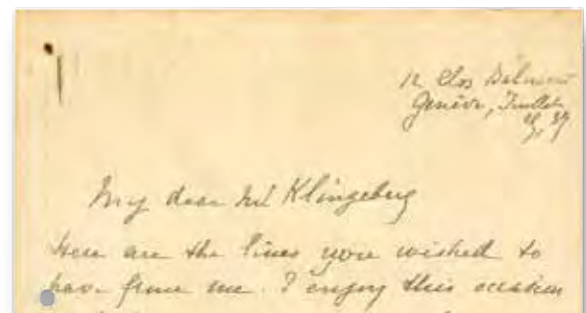 12 Clos Belmont
Genève, Juillet
My dear Mr Klingeberg
Here are the lines you wished to
have from me. I enjoy this occasion